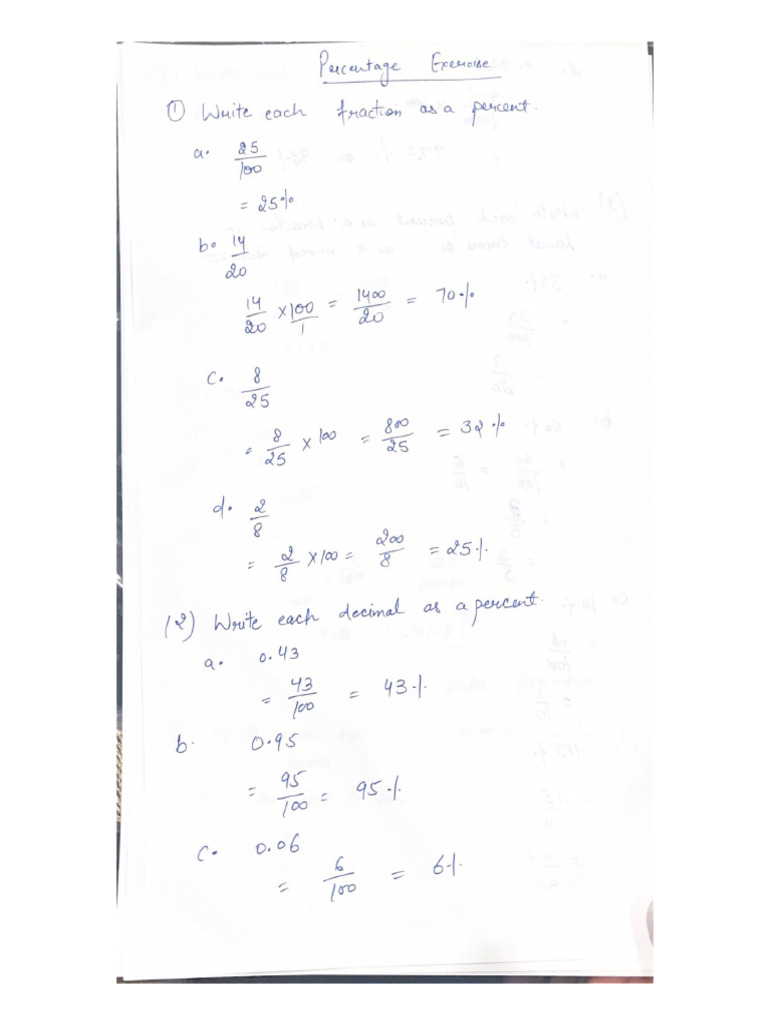 Percentage Exercise
① Write each fraction as a percent.
a. 25/100
= 25%
b. 14/20
14/20 × 100/1 = 1400/20 = 70%
c. 8/25
= 8/25 × 100 = 800/25 = 32%
d. 2/8
= 2/8 × 100 = 200/8 = 25%
(2) Write each decimal as a percent.
a. 0.43
= 43/100 = 43%
b. 0.95
= 95/100 = 95%
c. 0.06
= 6/100 = 6%